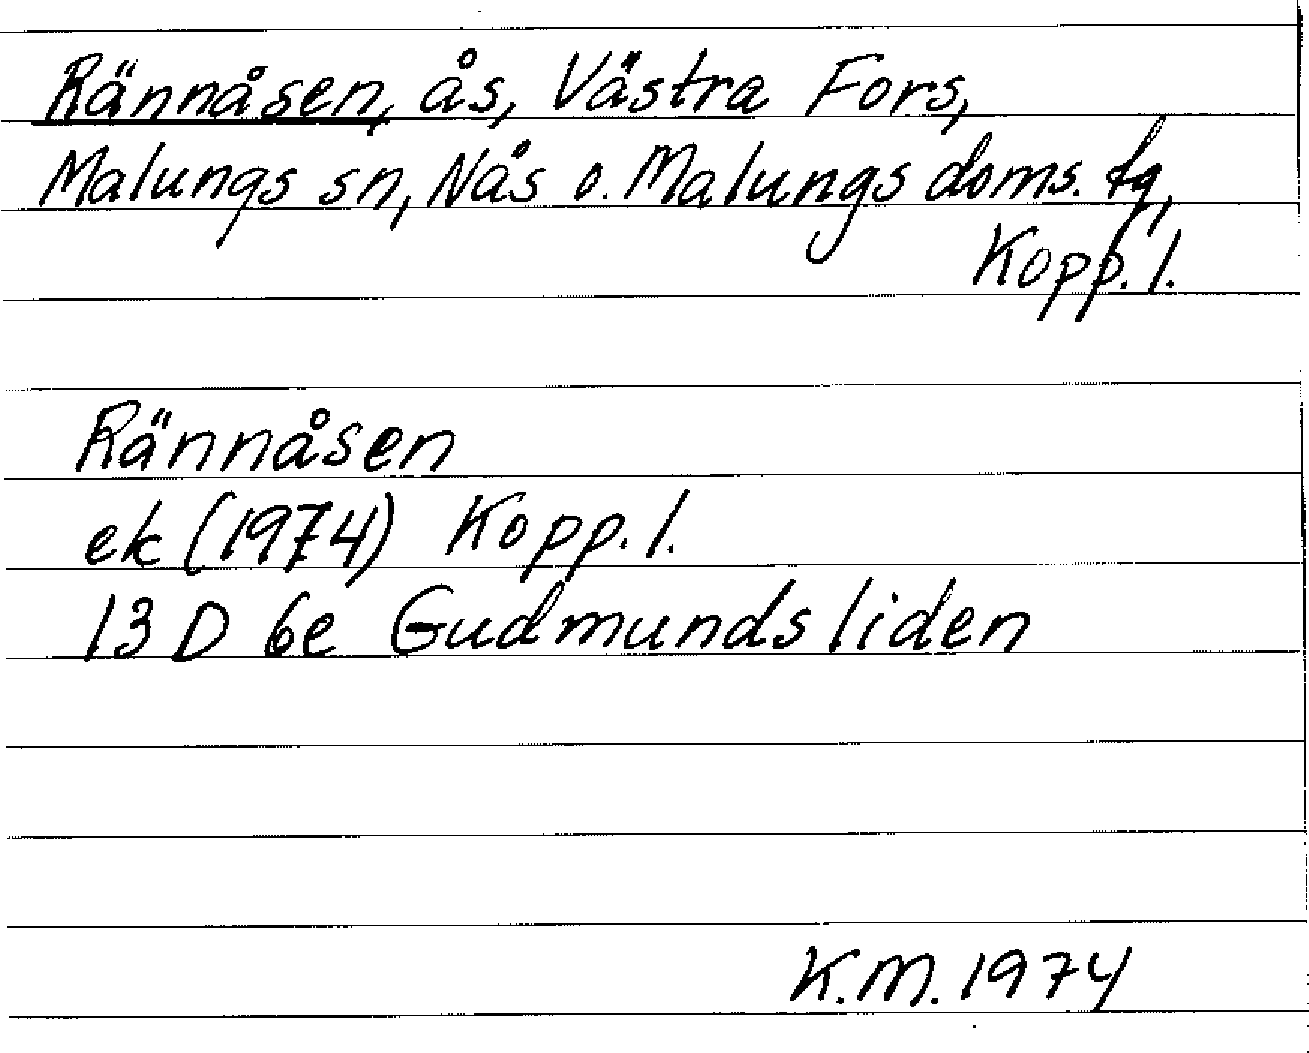 Rännåsen, ås, Västra Fors,
Malungs sn, Nås o. Malungs doms. fg,
Kopp. l.
Rännåsen
ek (1974) Kopp. l.
13 D 6e Gudmundsliden
K.M. 1974